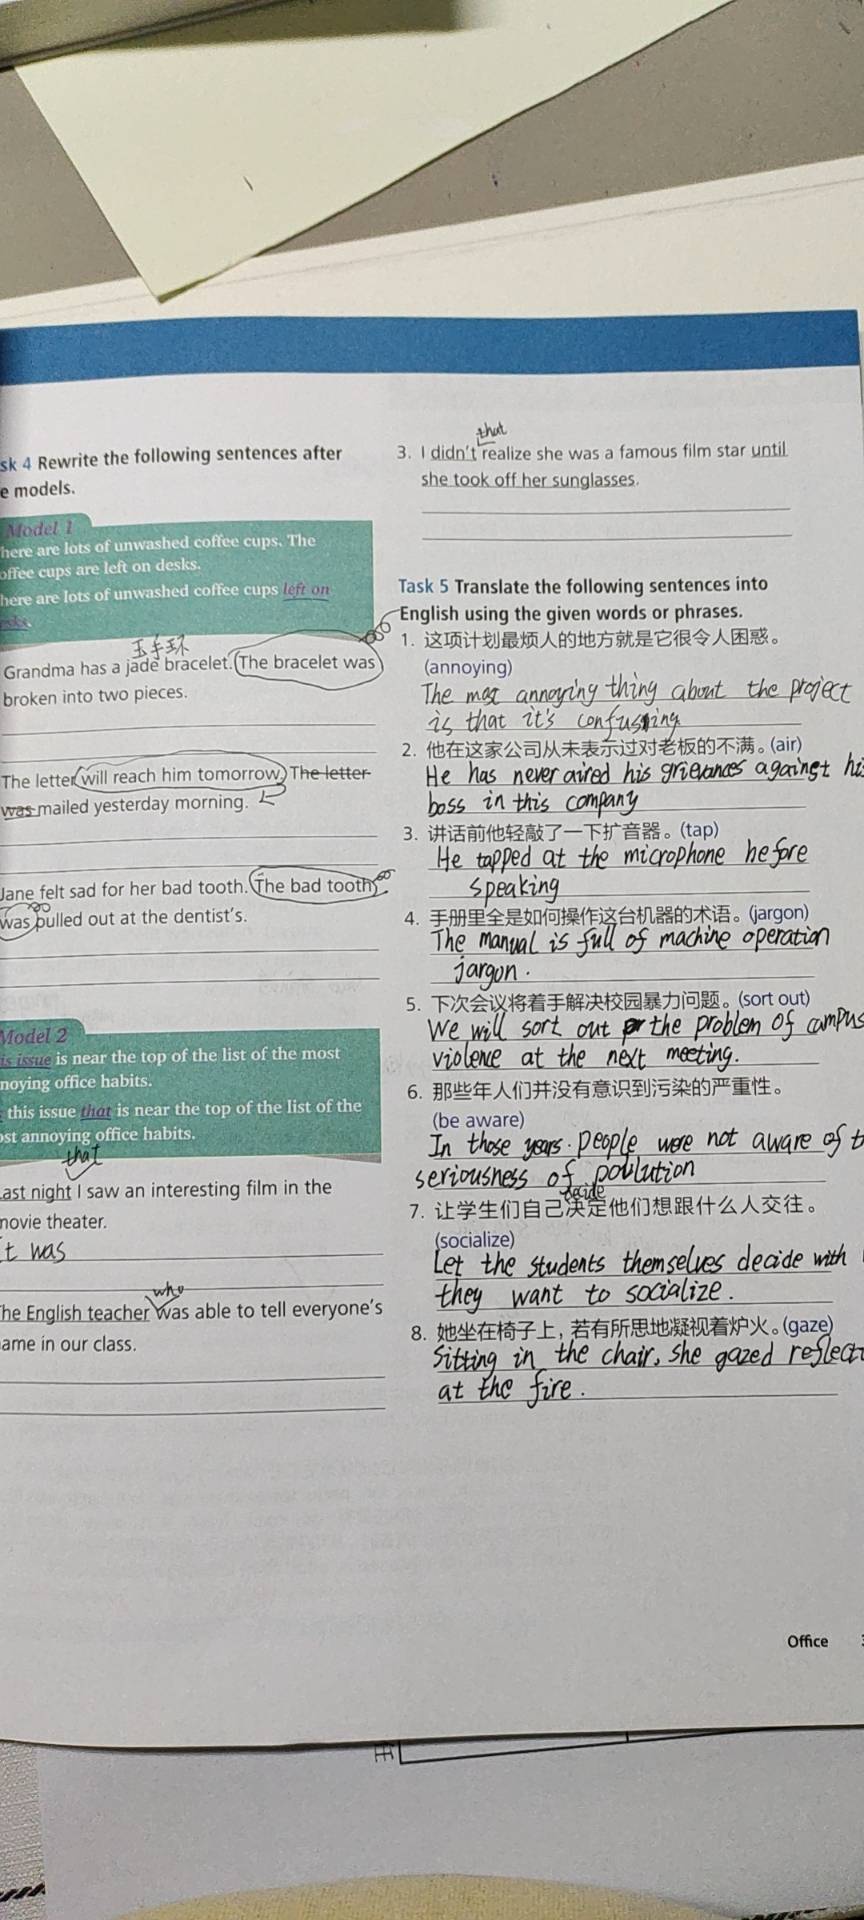 sk 4 Rewrite the following sentences after
e models.
Model 1
here are lots of unwashed coffee cups. The
offee cups are left on desks.
here are lots of unwashed coffee cups left on
玉手环
Grandma has a jade bracelet. The bracelet was
broken into two pieces.
The letter will reach him tomorrow. The letter
was mailed yesterday morning.
Jane felt sad for her bad tooth. The bad tooth
was pulled out at the dentist's.
Model 2
is issue is near the top of the list of the most
noying office habits.
this issue that is near the top of the list of the
ost annoying office habits.
that
ast night I saw an interesting film in the
movie theater.
t was
who
he English teacher was able to tell everyone's
ame in our class.
that
3. I didn't realize she was a famous film star until
she took off her sunglasses.
Task 5 Translate the following sentences into
English using the given words or phrases.
1. 这项计划最烦人的地方就是它很令人困惑。
(annoying)
The most annoying thing about the project
is that it's confusing
2. 他在这家公司从未表示过对老板的不满。(air)
He has never aired his grievances against hi
boss in this company
3. 讲话前他轻敲了一下扩音器。(tap)
He tapped at the microphone before
speaking
4. 手册里全是如何操作这台机器的术语。(jargon)
The manual is full of machine operation
jargon.
5. 下次会议将着手解决校园暴力问题。(sort out)
We will sort out the problem of campus
violence at the next meeting.
6. 那些年人们并没有意识到污染的严重性。
(be aware)
In those years. people were not aware of t
seriousness of pollution
decide
7. 让学生们自己决定他们想跟什么人交往。
(socialize)
Let the students themselves decide with
they want to socialize.
8. 她坐在椅子上，若有所思地凝视着炉火。(gaze)
Sitting in the chair, she gazed reflect
at the fire.
Office